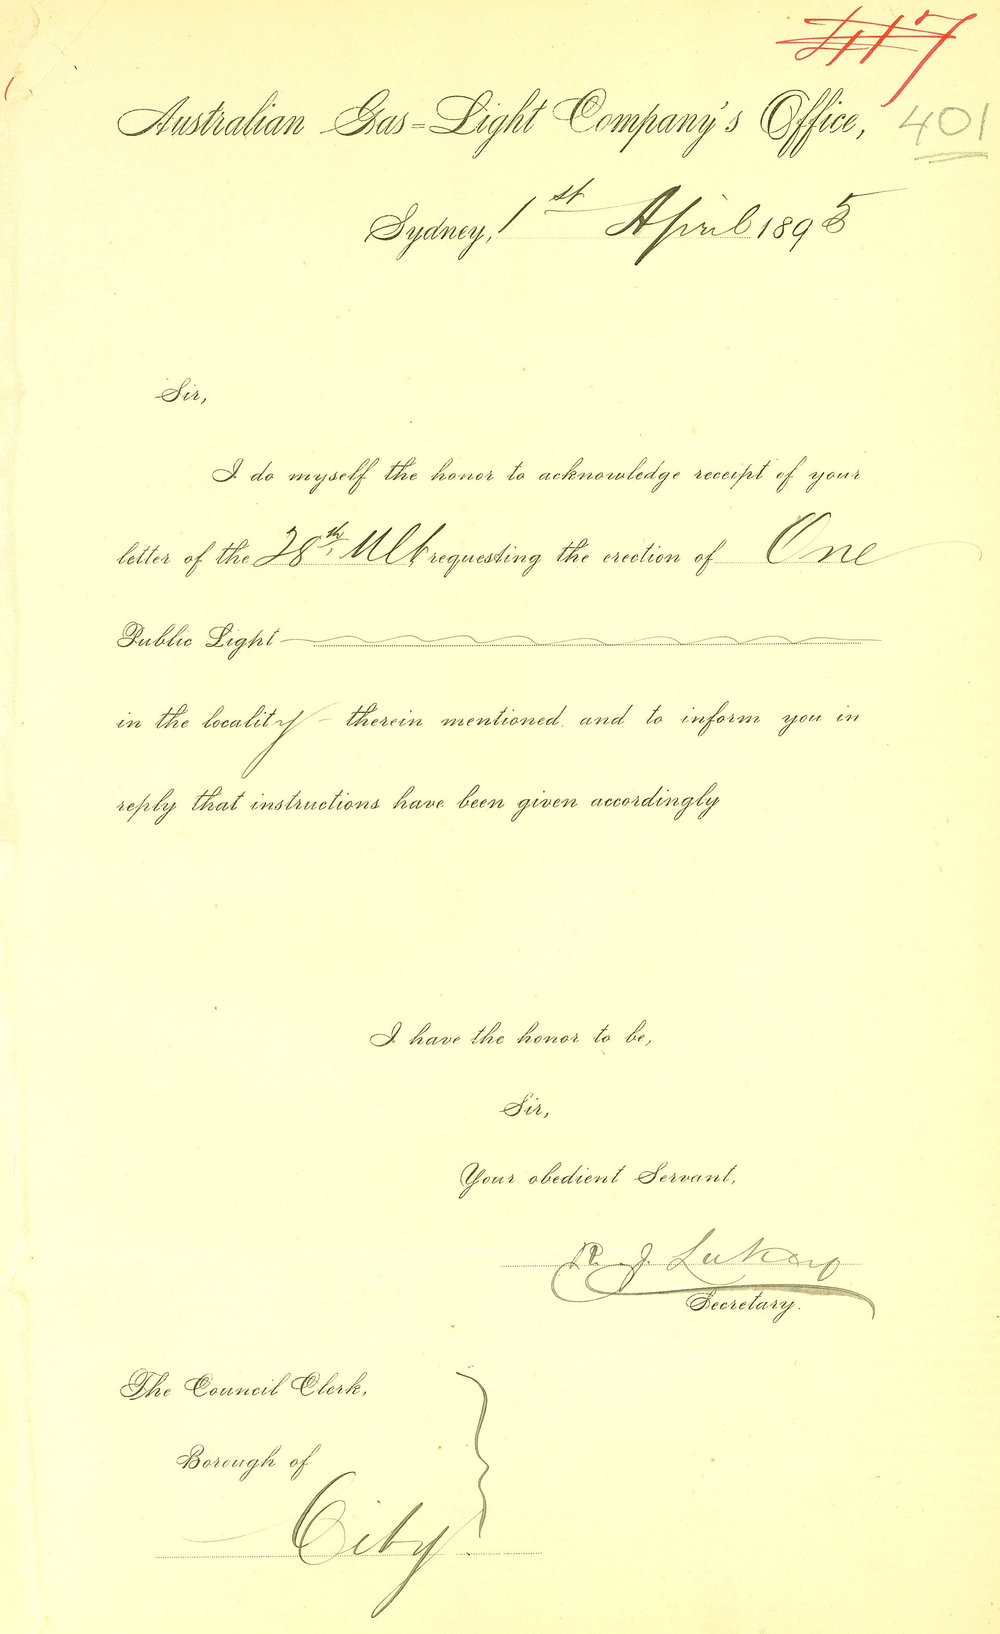 417
Australian Gas-Light Company's Office,
401
Sydney, 1st April 1895
Sir,
I do myself the honor to acknowledge receipt of your
letter of the 28th Ult requesting the erection of One
Public Light
in the locality therein mentioned and to inform you in
reply that instructions have been given accordingly
I have the honor to be,
Sir,
Your obedient Servant,
R. J. Lukey
Secretary.
The Council Clerk,
Borough of
City